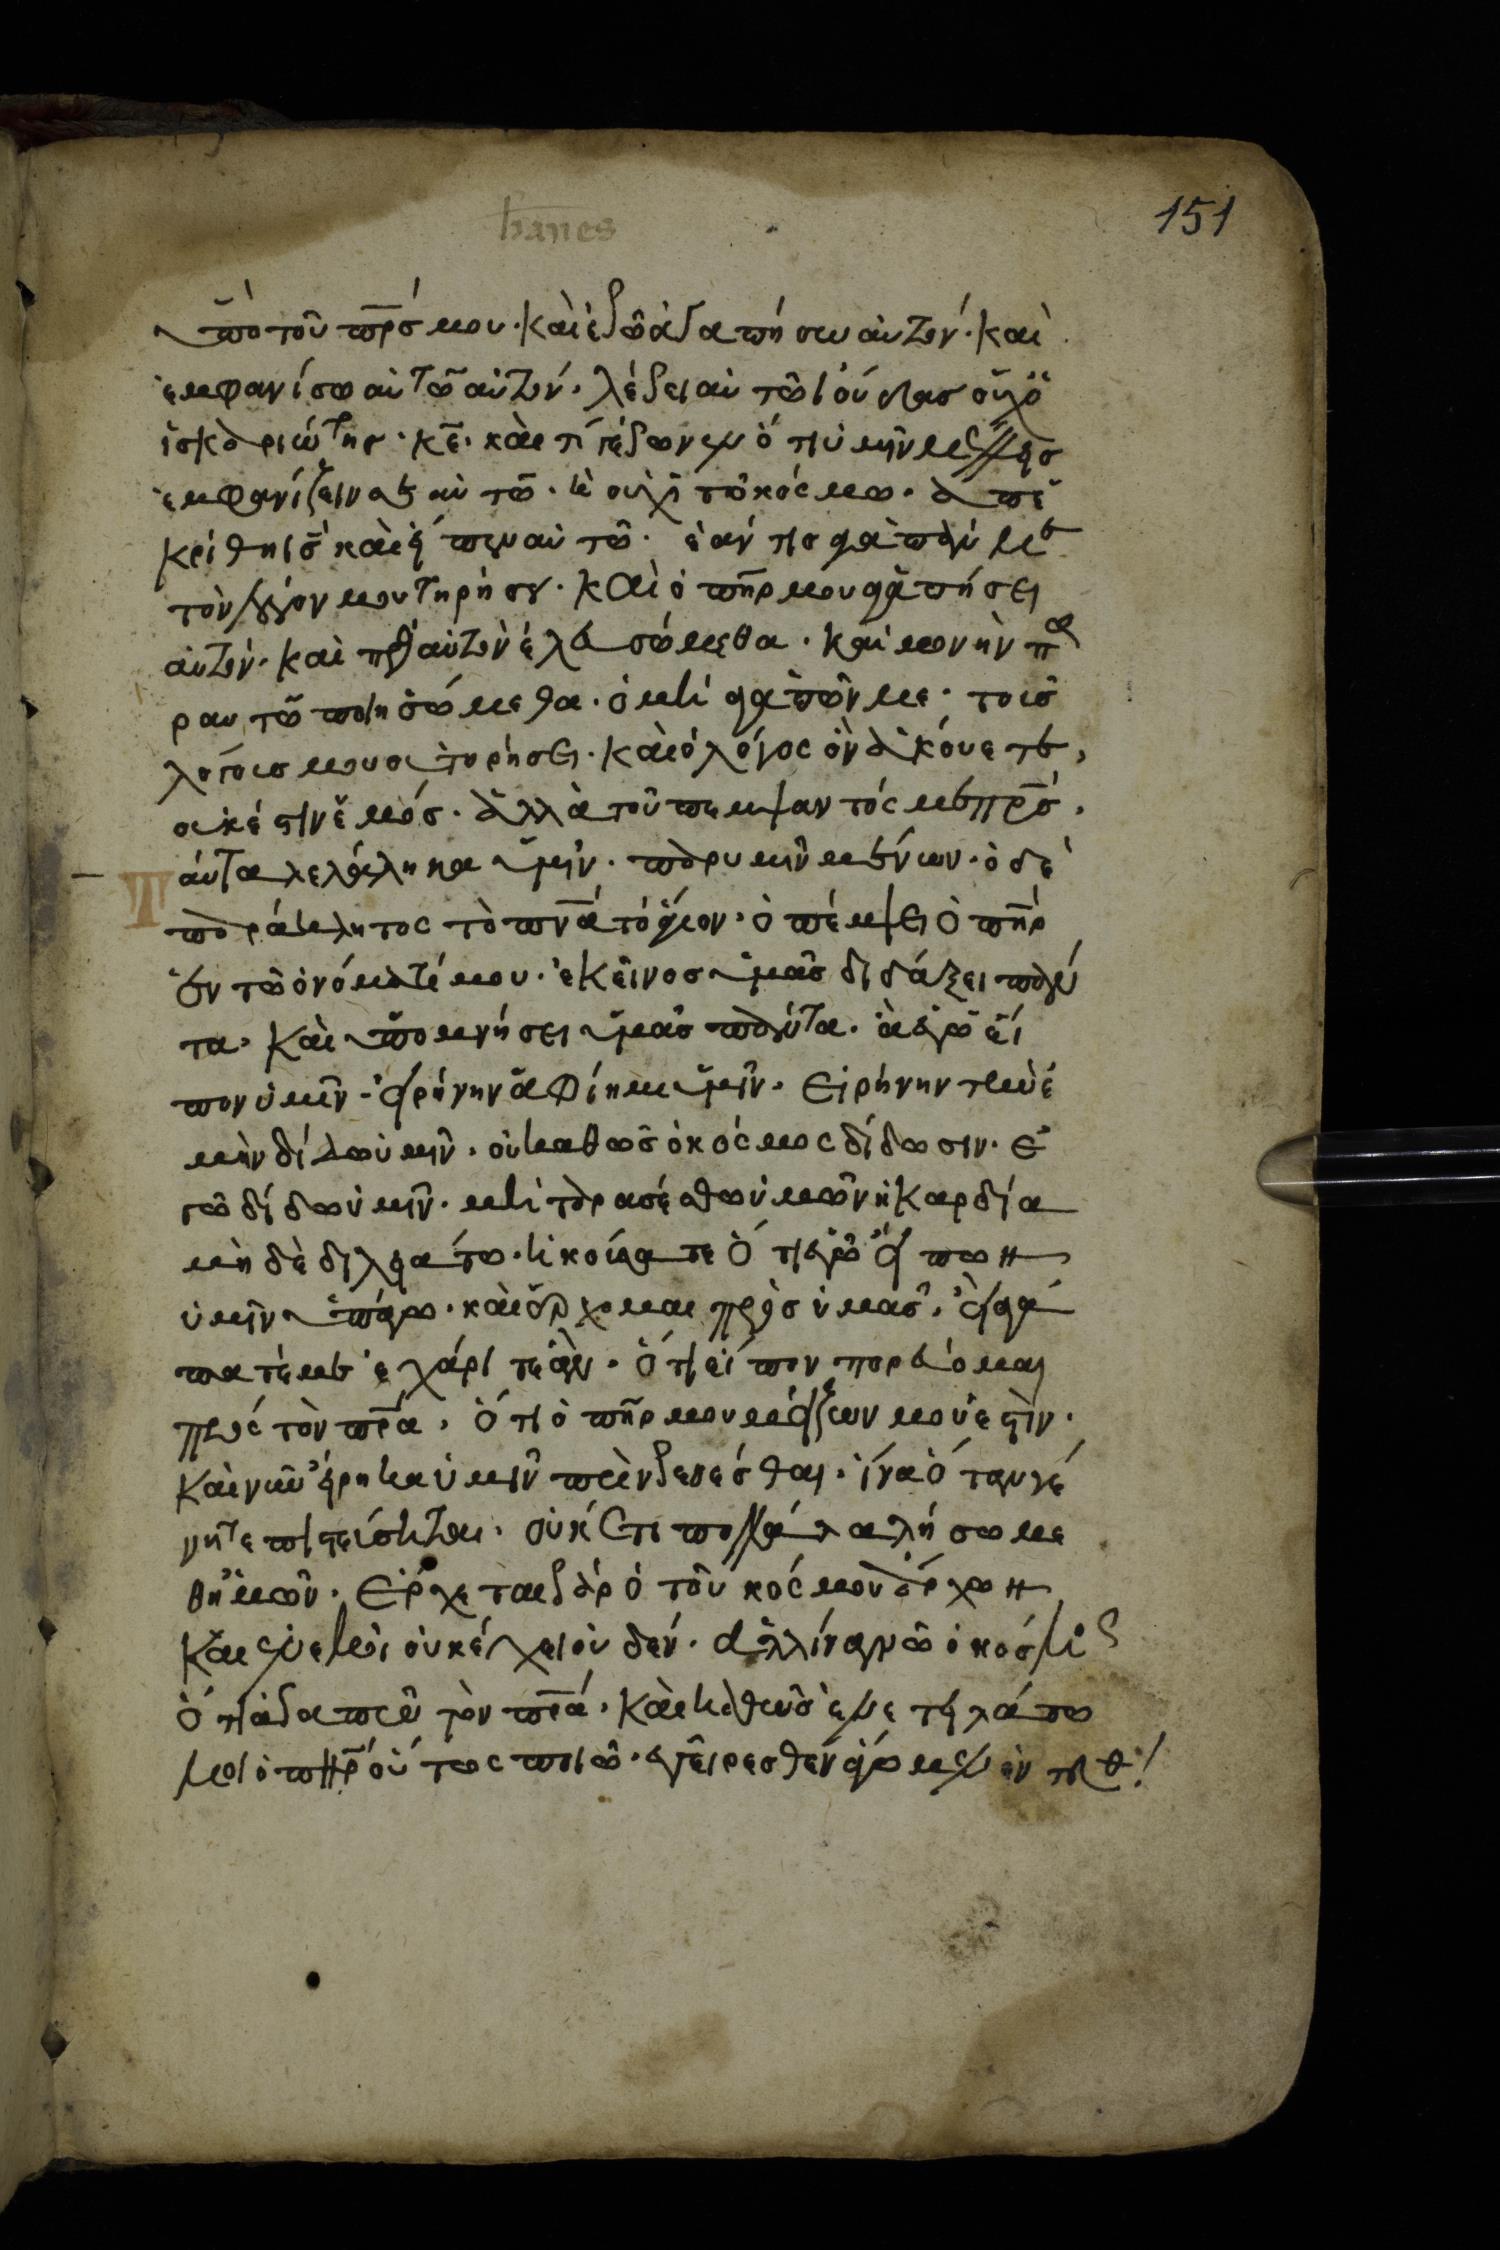 hanes
151
ὑπὸ τοῦ πρσ μου· καὶ ἐγῶ ἀγαπήσω αὐτόν· καὶ
ἐμφανίσω αὐτῶ αὐτόν· λέγει αὐτῶ ἰούδας οὐχ ὁ
ἰσκαριώτης· κε· καὶ τί γέγωνεν ὅτι ὑμῖν μέλλης
ἐμφανίζειν σεαυτῶ· καὶ οὐχὶ τῶ κόσμω· ἀπε
κρίθη ις καὶ εἶπεν αὐτῶ· ἐάν τις ἀγαπᾶ με
τὸν λόγον μου τηρήσει· καὶ ὁ πηρ μου ἀγαπήσει
αὐτόν· καὶ πρὸς αὐτὸν ἐλευσώμεθα· καὶ μονὴν πα
ρ αυτῶ ποιησώμεθα· ὁ μὴ ἀγαπῶν με· τοὺς
λόγους μου οὐ τηρήσει· καὶ ὁ λόγος ὃν ἀκούετε,
οὐκ έστιν ἐμός· ἀλλὰ τοῦ πεμψαντός με πρσ·
αύτα λελάληκα ὑμῖν· παρ υμῖν μένων· ὁ δὲ
παράκλητος τὸ πνα τὸ ἅγιον· ὃ πέμψει ὁ πηρ
ἐν τῶ ὀνόματί μου· ἐκεῖνος ὑμᾶς διδάξει πάν
τα· καὶ ὑπομνήσει ὑμᾶς πάντα· ἃ ἐγὼ εἶ
πον ὑμῖν· εἰρήνην ἀφίημι ὑμῖν· εἰρήνην τὴν ἐ
μὴν δίδω ὑμῖν· οὐ καθὼς ὁ κόσμος δίδωσιν· ἐ
γῶ δίδω ὑμῖν· μὴ ταρασέσθω ὑμῶν ἡ καρδία
μὴ δὲ διλϊάτω· ἠκούσατε ὅτι ἐγὼ εἶπων
ὑμῖν ὑπάγω· καὶ ἔρχομαι πρὸς ὑμᾶς· εἰ ἀγά
πατέ με ἐχάριτε ἄν· ὅτι εἶπον πορεύομαι
πρὸς τὸν πρα· ὅτι ὁ πηρ μου μείζων μού ἐστιν·
καὶ νῦν εἴρηκα ὑμῖν πρὶν γενέσθαι· ἵνα ὅταν γέ
νητε πιστεύσητε· οὐκέτι πολλὰ λαλήσω με
θ ἡμῶν· ἔρχεται γὰρ ὁ τοῦ κόσμου ἄρχων
καὶ ἐν ἐμοὶ οὐκ έχει οὐδέν· ἀλλ ίνα γνῶ ὁ κόσμος
ὅτι ἀγαπῶ τὸν πρα· καὶ καθὼς ἐνετείλατω
μοι ὁ πηρ οὕτως ποιῶ· ἐγείρεσθε ἄγωμεν ἐντεῦθ